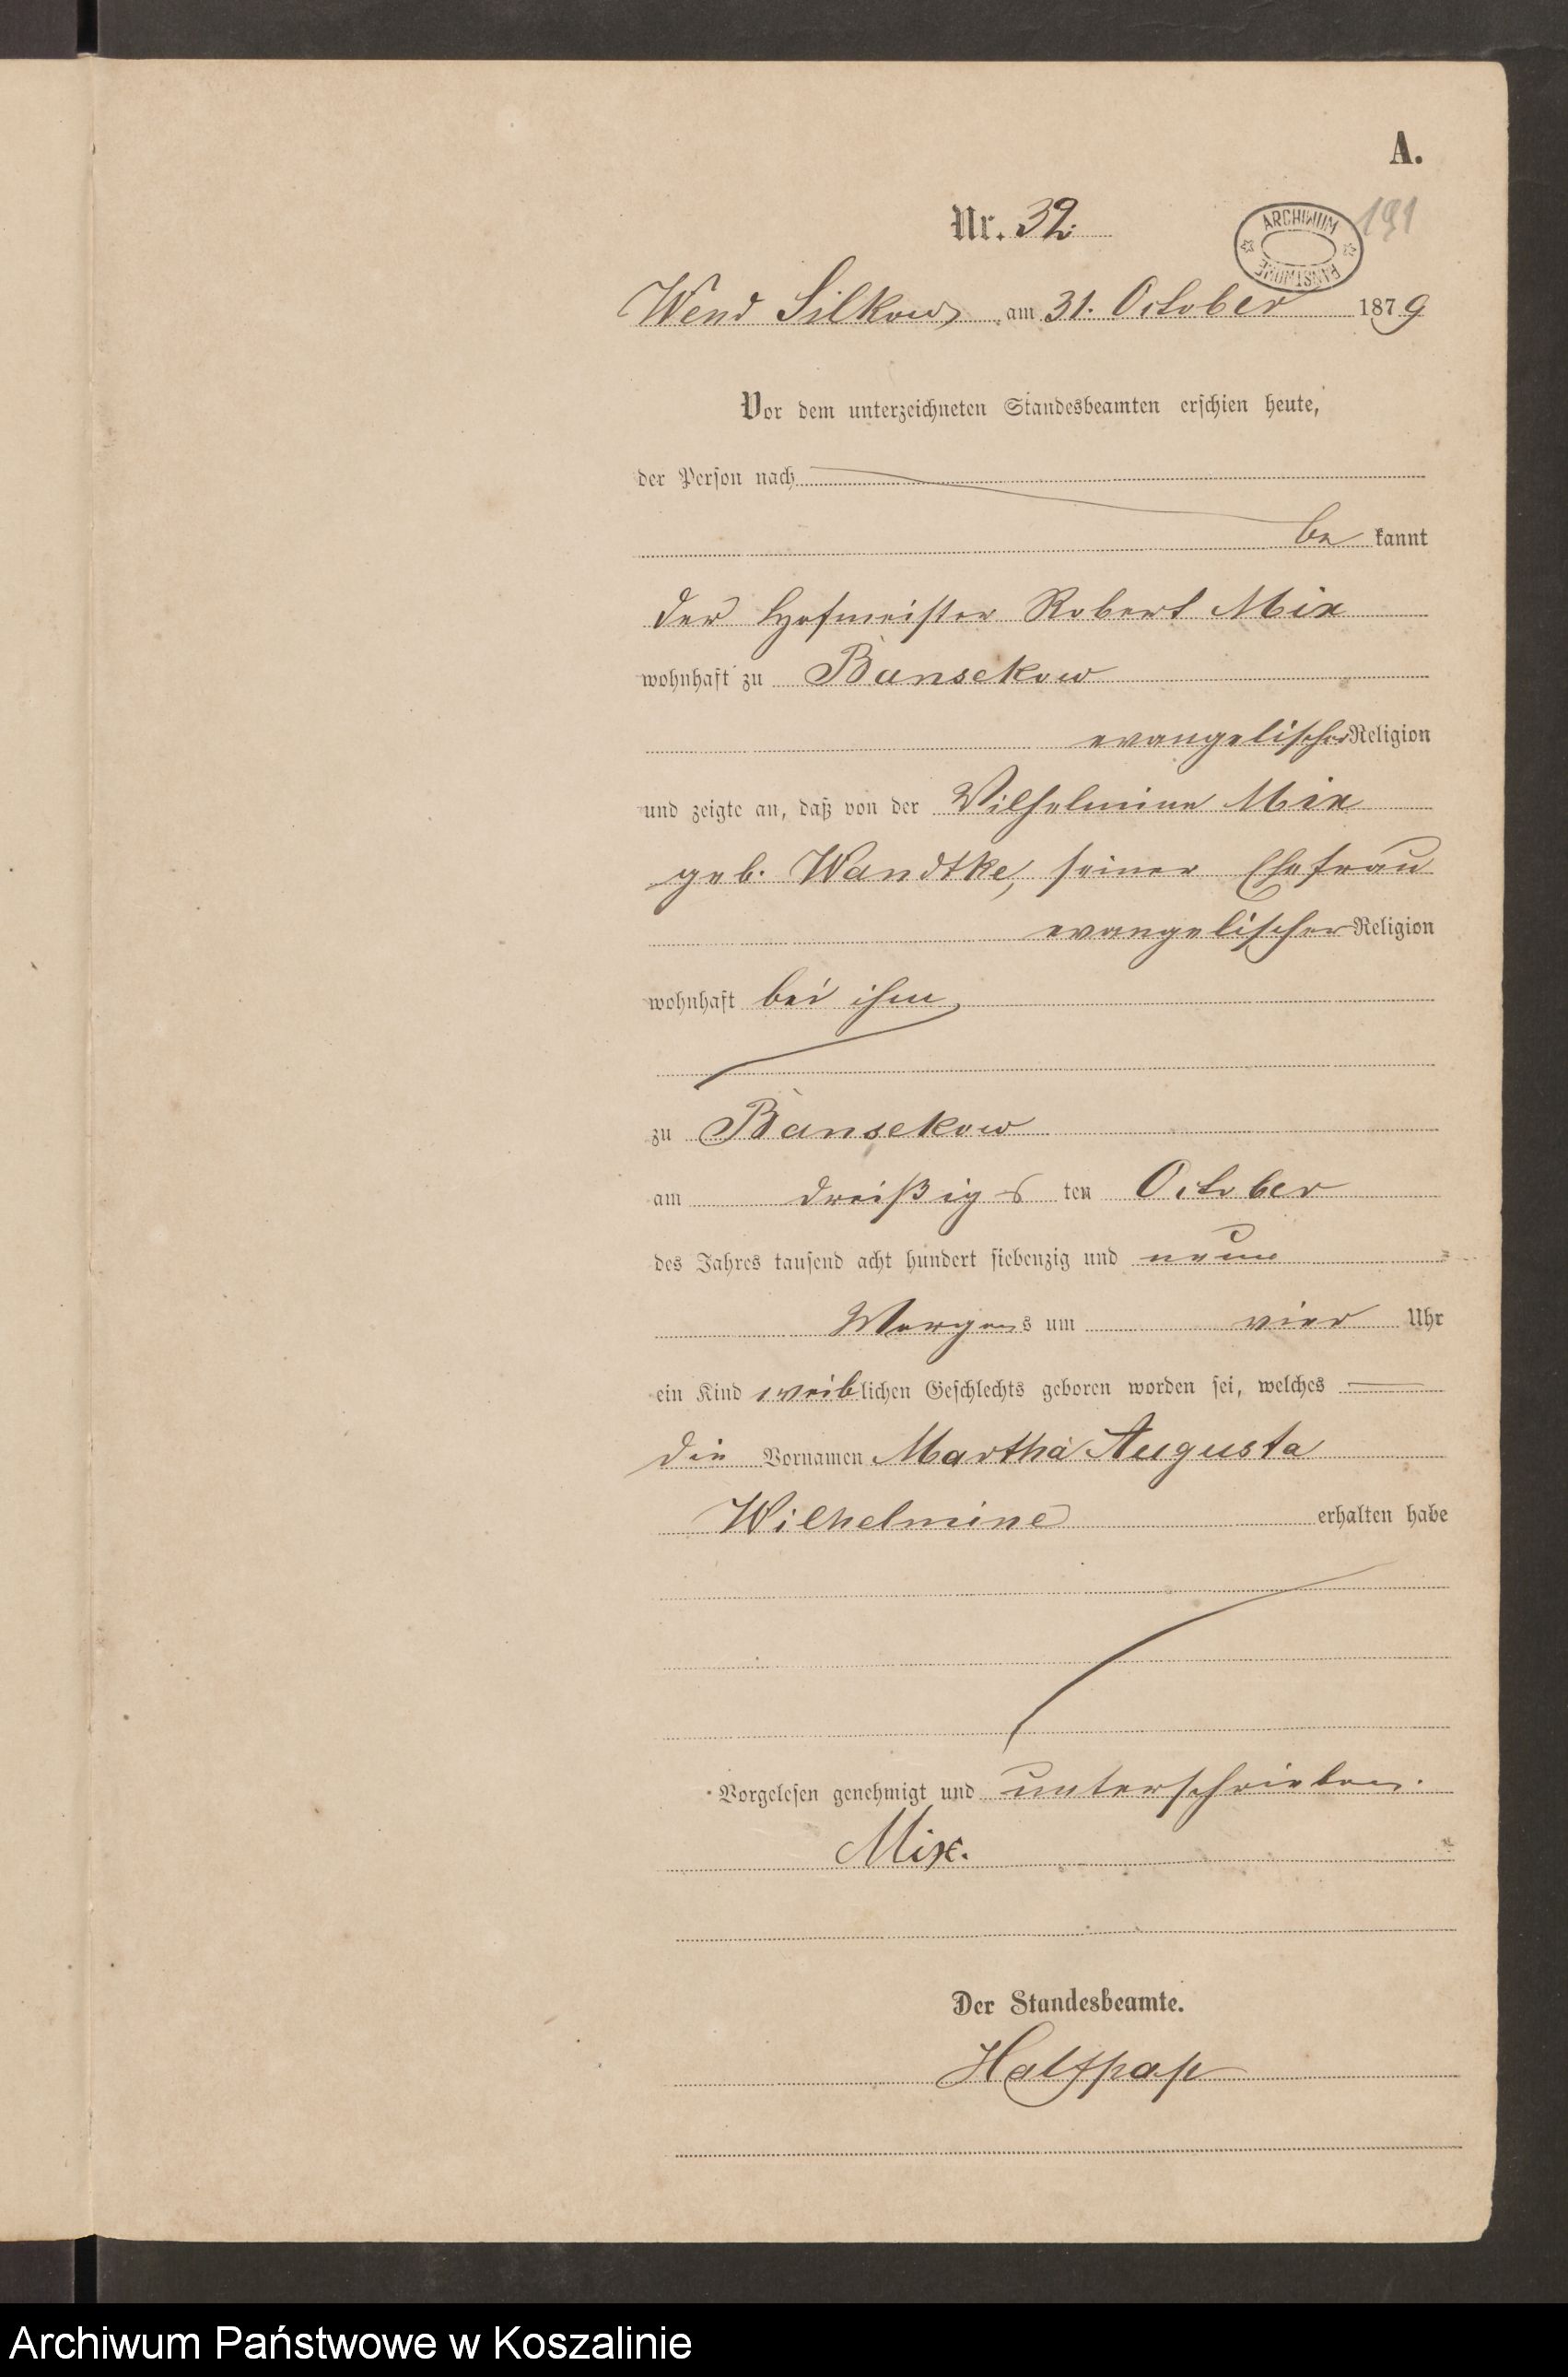 A.
Nr. 32.
ARCHIWUM PAŃSTWOWE
191
Wend Silkow, am 31. October 1879
Vor dem unterzeichneten Standesbeamten erschien heute,
der Person nach
be kannt
der Hofmeister Robert Mix
wohnhaft zu Bansekow
evangelischer Religion
und zeigte an, daß von der Wilhelmine Mix
geb. Wandtke, seiner Ehefrau
evangelischer Religion
wohnhaft bei ihm,
zu Bansekow
am dreißigs ten October
des Jahres tausend acht hundert siebenzig und neun
Morgens um vier Uhr
ein Kind weiblichen Geschlechts geboren worden sei, welches
die Vornamen Martha Augusta
Wilhelmine erhalten habe
Vorgelesen genehmigt und unterschrieben.
Mix.
Der Standesbeamte.
Halfpap
Archiwum Państwowe w Koszalinie